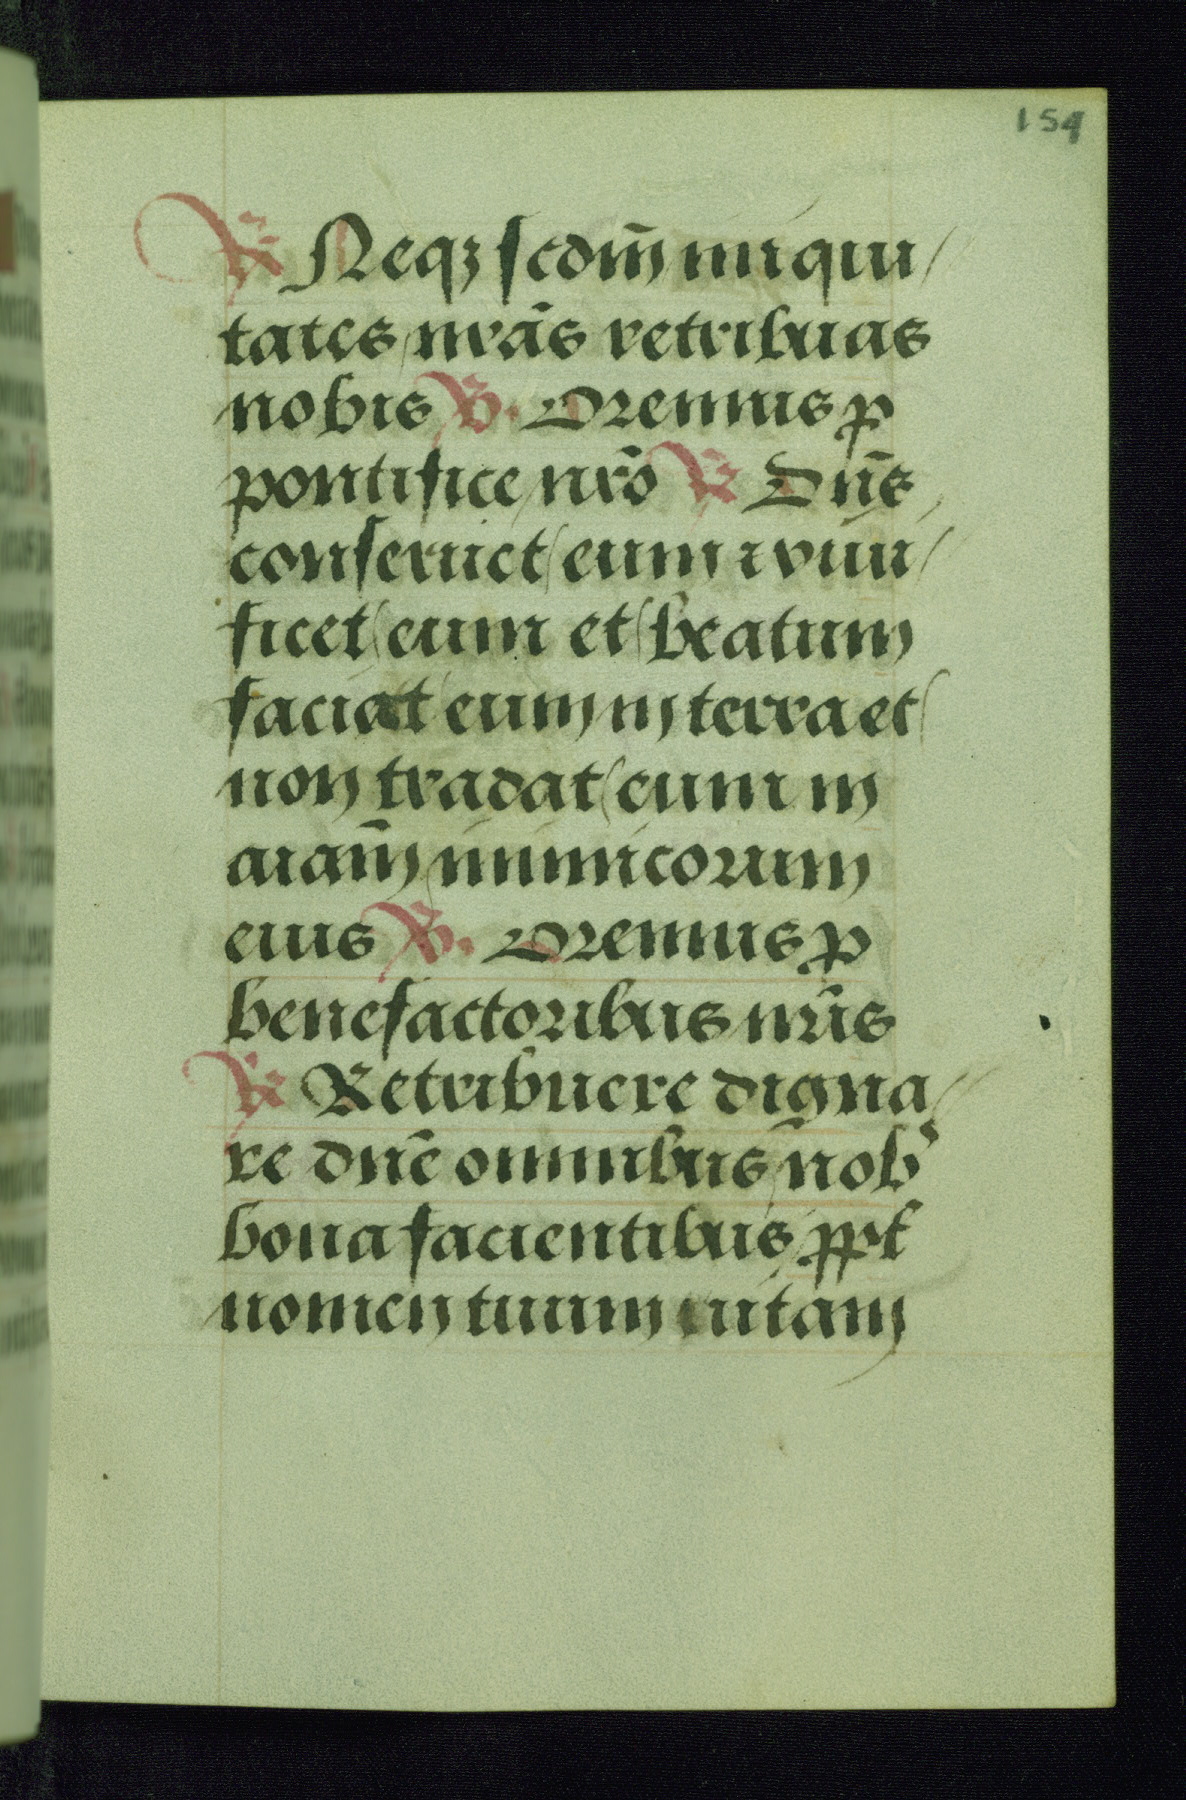 154
℟ Neqꝫ scdm̄ iniqui/
tates nrās retribuas
nobis ℣. Oremus ꝓ
pontifice nrō ℟ Dn̄s
conseruet eum ⁊ viui/
ficet eum et beatum
faciat eum in terra et
non tradat eum in
aiam̄ inimicorum
eius ℣. Oremus ꝓ
benefactoribus nrīs
℟ Retribuere digna/
re dnē omnibus nob̾
bona facientibus ꝓpt̄
nomen tuum uitam